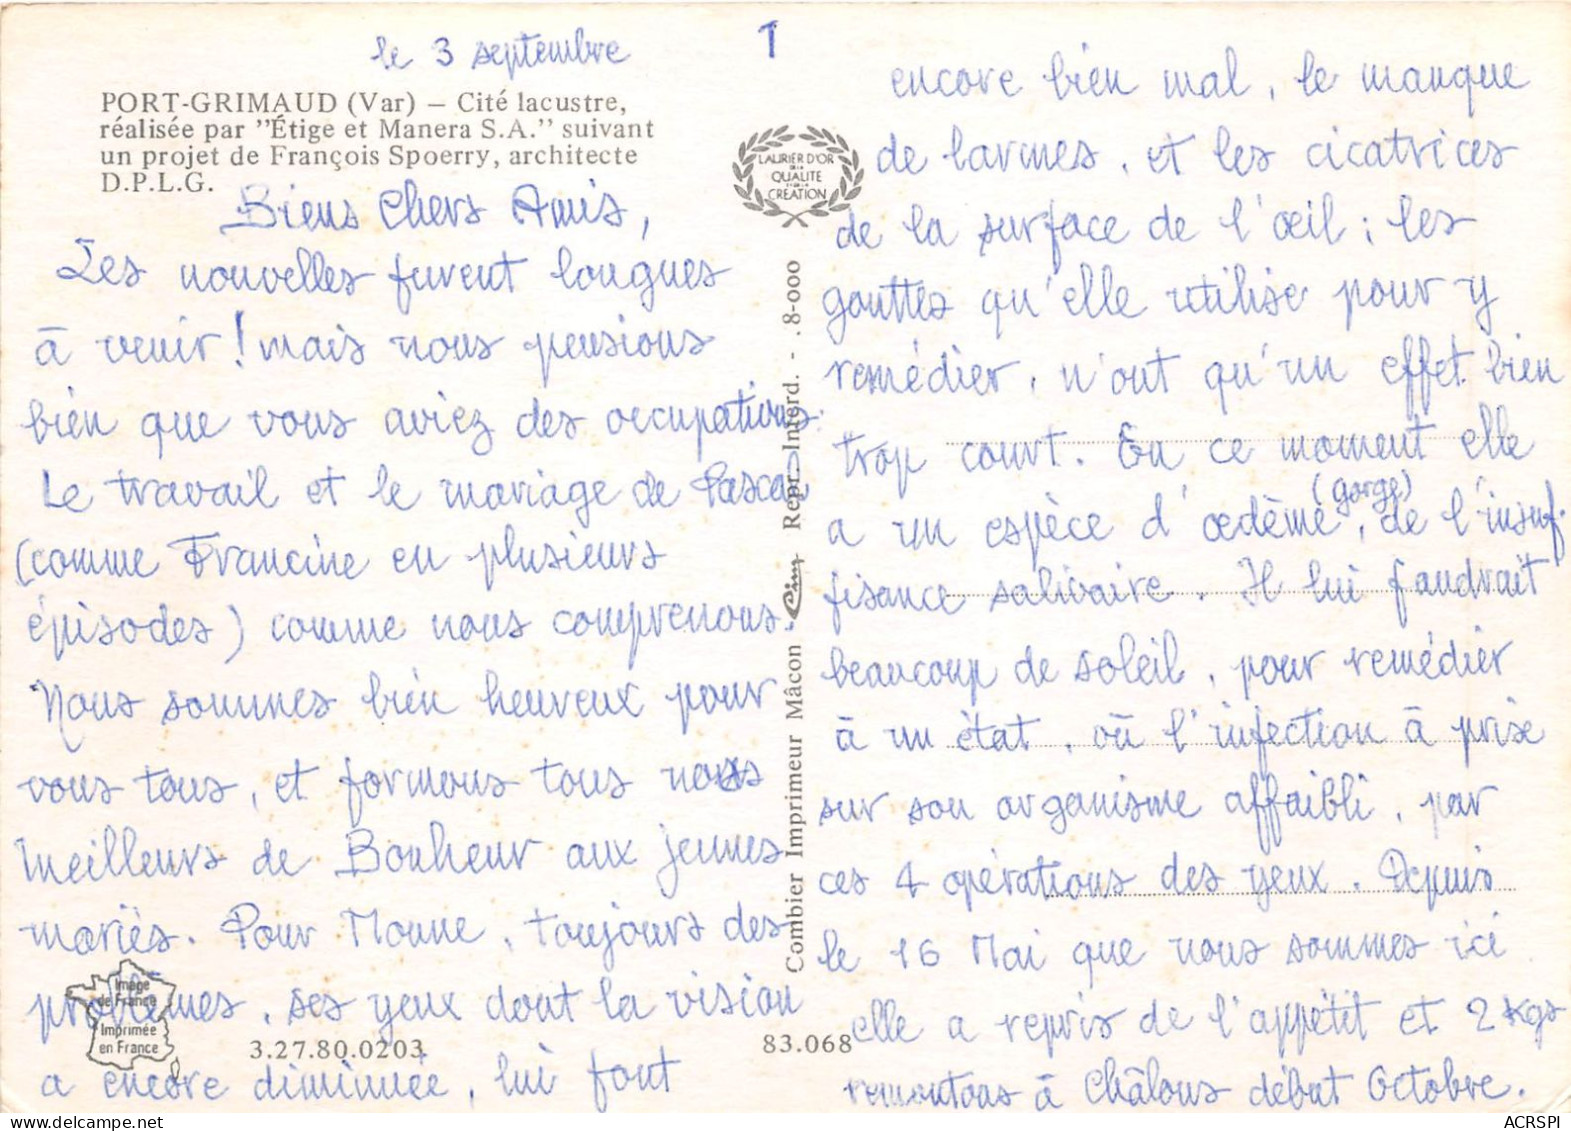 le 3 septembre
1
PORT-GRIMAUD (Var) – Cité lacustre,
réalisée par "Étige et Manera S.A." suivant
un projet de François Spoerry, architecte
D.P.L.G.
Biens Chers Amis,
Les nouvelles furent longues
à venir ! mais nous pensions
bien que vous aviez des occupations.
Le travail et le mariage de Pascal
(comme Francine en plusieurs
épisodes) comme nous comprenons.
Nous sommes bien heureux pour
vous tous, et formons tous nos
meilleurs de Bonheur aux jeunes
mariés. Pour Monne, toujours des
problèmes, ses yeux dont la vision
a encore diminuée, lui font
Image
de France
Imprimée
en France
3.27.80.0203
LAURIER D'OR
DE LA
QUALITE
ET DE LA
CREATION
Combier Imprimeur Mâcon Cim Repr. Interd. - .8-000
83.068
encore bien mal, le manque
de larmes, et les cicatrices
de la surface de l'œil ; les
gouttes qu'elle utilise pour y
remédier, n'ont qu'un effet bien
trop court. En ce moment elle
a un espèce d'œdème (gorge), de l'insuf-
fisance salivaire. Il lui faudrait
beaucoup de soleil, pour remédier
à un état, où l'infection à prise
sur son organisme affaibli, par
ces 4 opérations des yeux. Depuis
le 16 Mai que nous sommes ici
elle a repris de l'appétit et 2 kgs
remontons à Châlons début Octobre.
ACRSPI